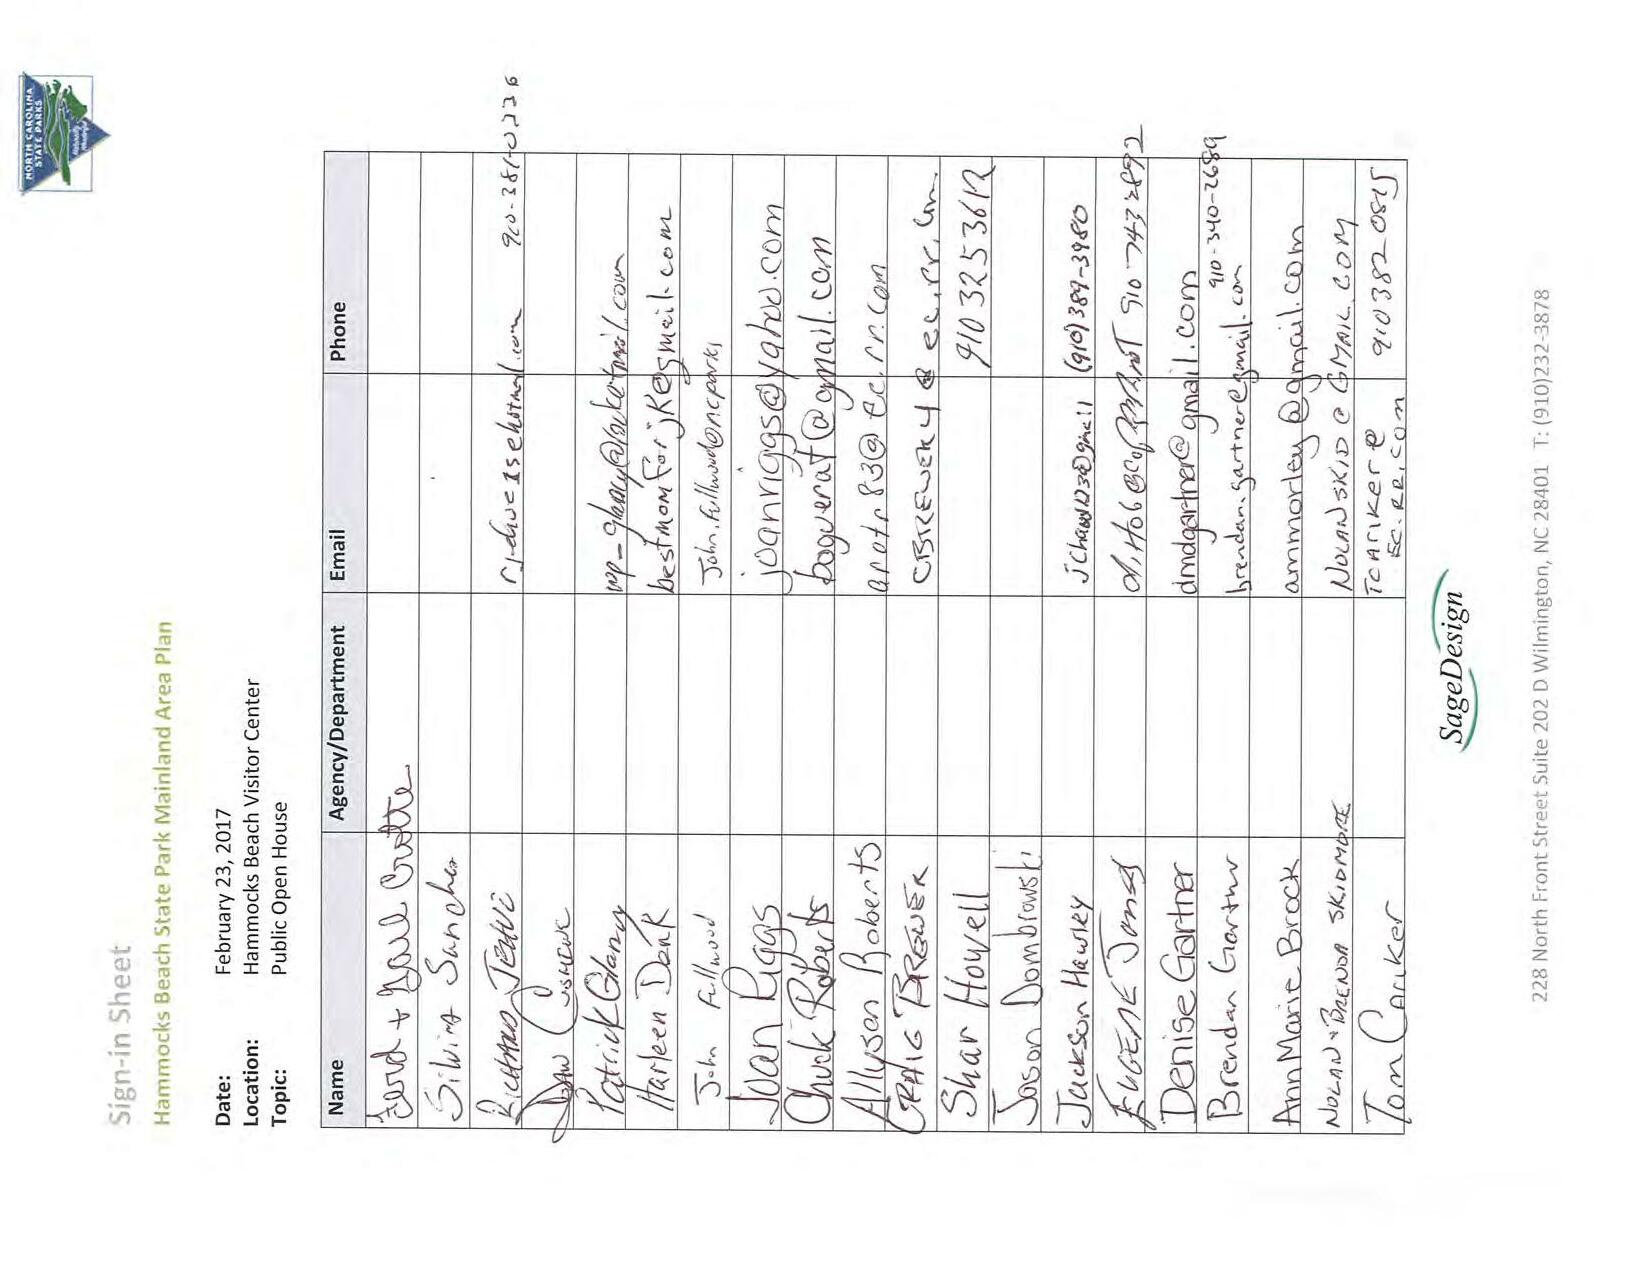 NORTH CAROLINA
STATE PARKS
Sign-in Sheet
Hammocks Beach State Park Mainland Area Plan
Date: February 23, 2017
Location: Hammocks Beach Visitor Center
Topic: Public Open House
Name Agency/Department Email Phone
Silvina Sanches
910-381-0226
Patrick Glancy
Harleen Dank bestmomforjk@gmail.com
John Fullwood John.Fullwood@ncparks
Joan Riggs joanriggs@yahoo.com
Chuck Roberts boguerat@gmail.com
Allyson Roberts arotr83@ec.rr.com
CRAIG BREWER CBREWER4@ec.rr.com
Shar Howell 910 325 3612
Jason Dombrowski
Jackson Hawley (910) 389-3980
EUGENE Jones 910 743 2892
Denise Gartner dmdgartner@gmail.com
Brendan Gartner brendan.gartner@gmail.com 910-340-2689
AnnMarie Brock ammorley@gmail.com
NOLAN + BRENDA SKIDMORE NOLANSKID@GMAIL.COM
Tom Cariker TCARIKER@EC.RR.COM 910 382 0815
SageDesign
228 North Front Street Suite 202 D Wilmington, NC 28401 T: (910)232-3878